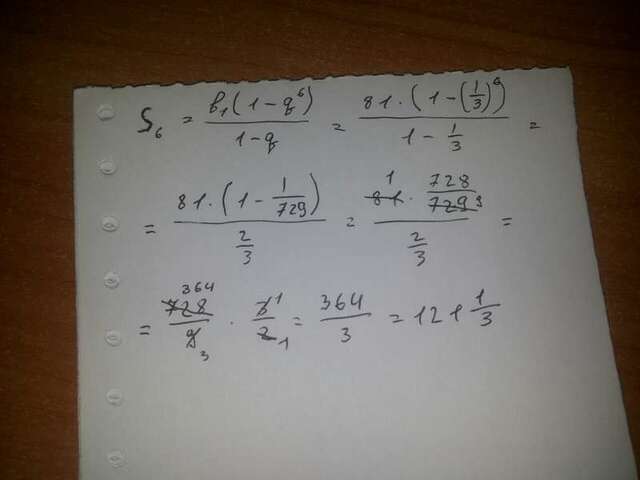 S₆ = b₁(1-q⁶)/(1-q) = 81·(1-(1/3)⁶)/(1-1/3) =
= 81·(1-1/729)/(2/3) = 81 1·728/729 9/(2/3) =
= 728 364/9 3 · 3 1/2 1 = 364/3 = 121 1/3